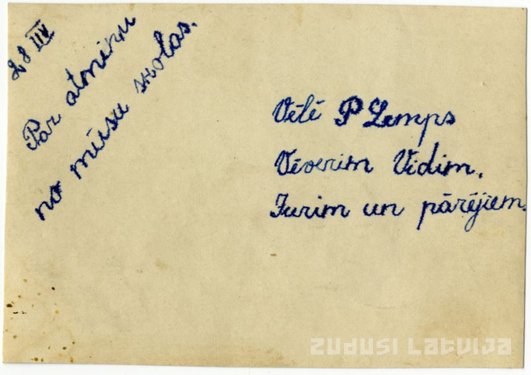 28 IIV
Par atmiņu
no mūsu skolas.
Vēlē P Lemps
Vēverim Vidim,
Jurim un pārējiem.
ZUDUSI LATVIJA